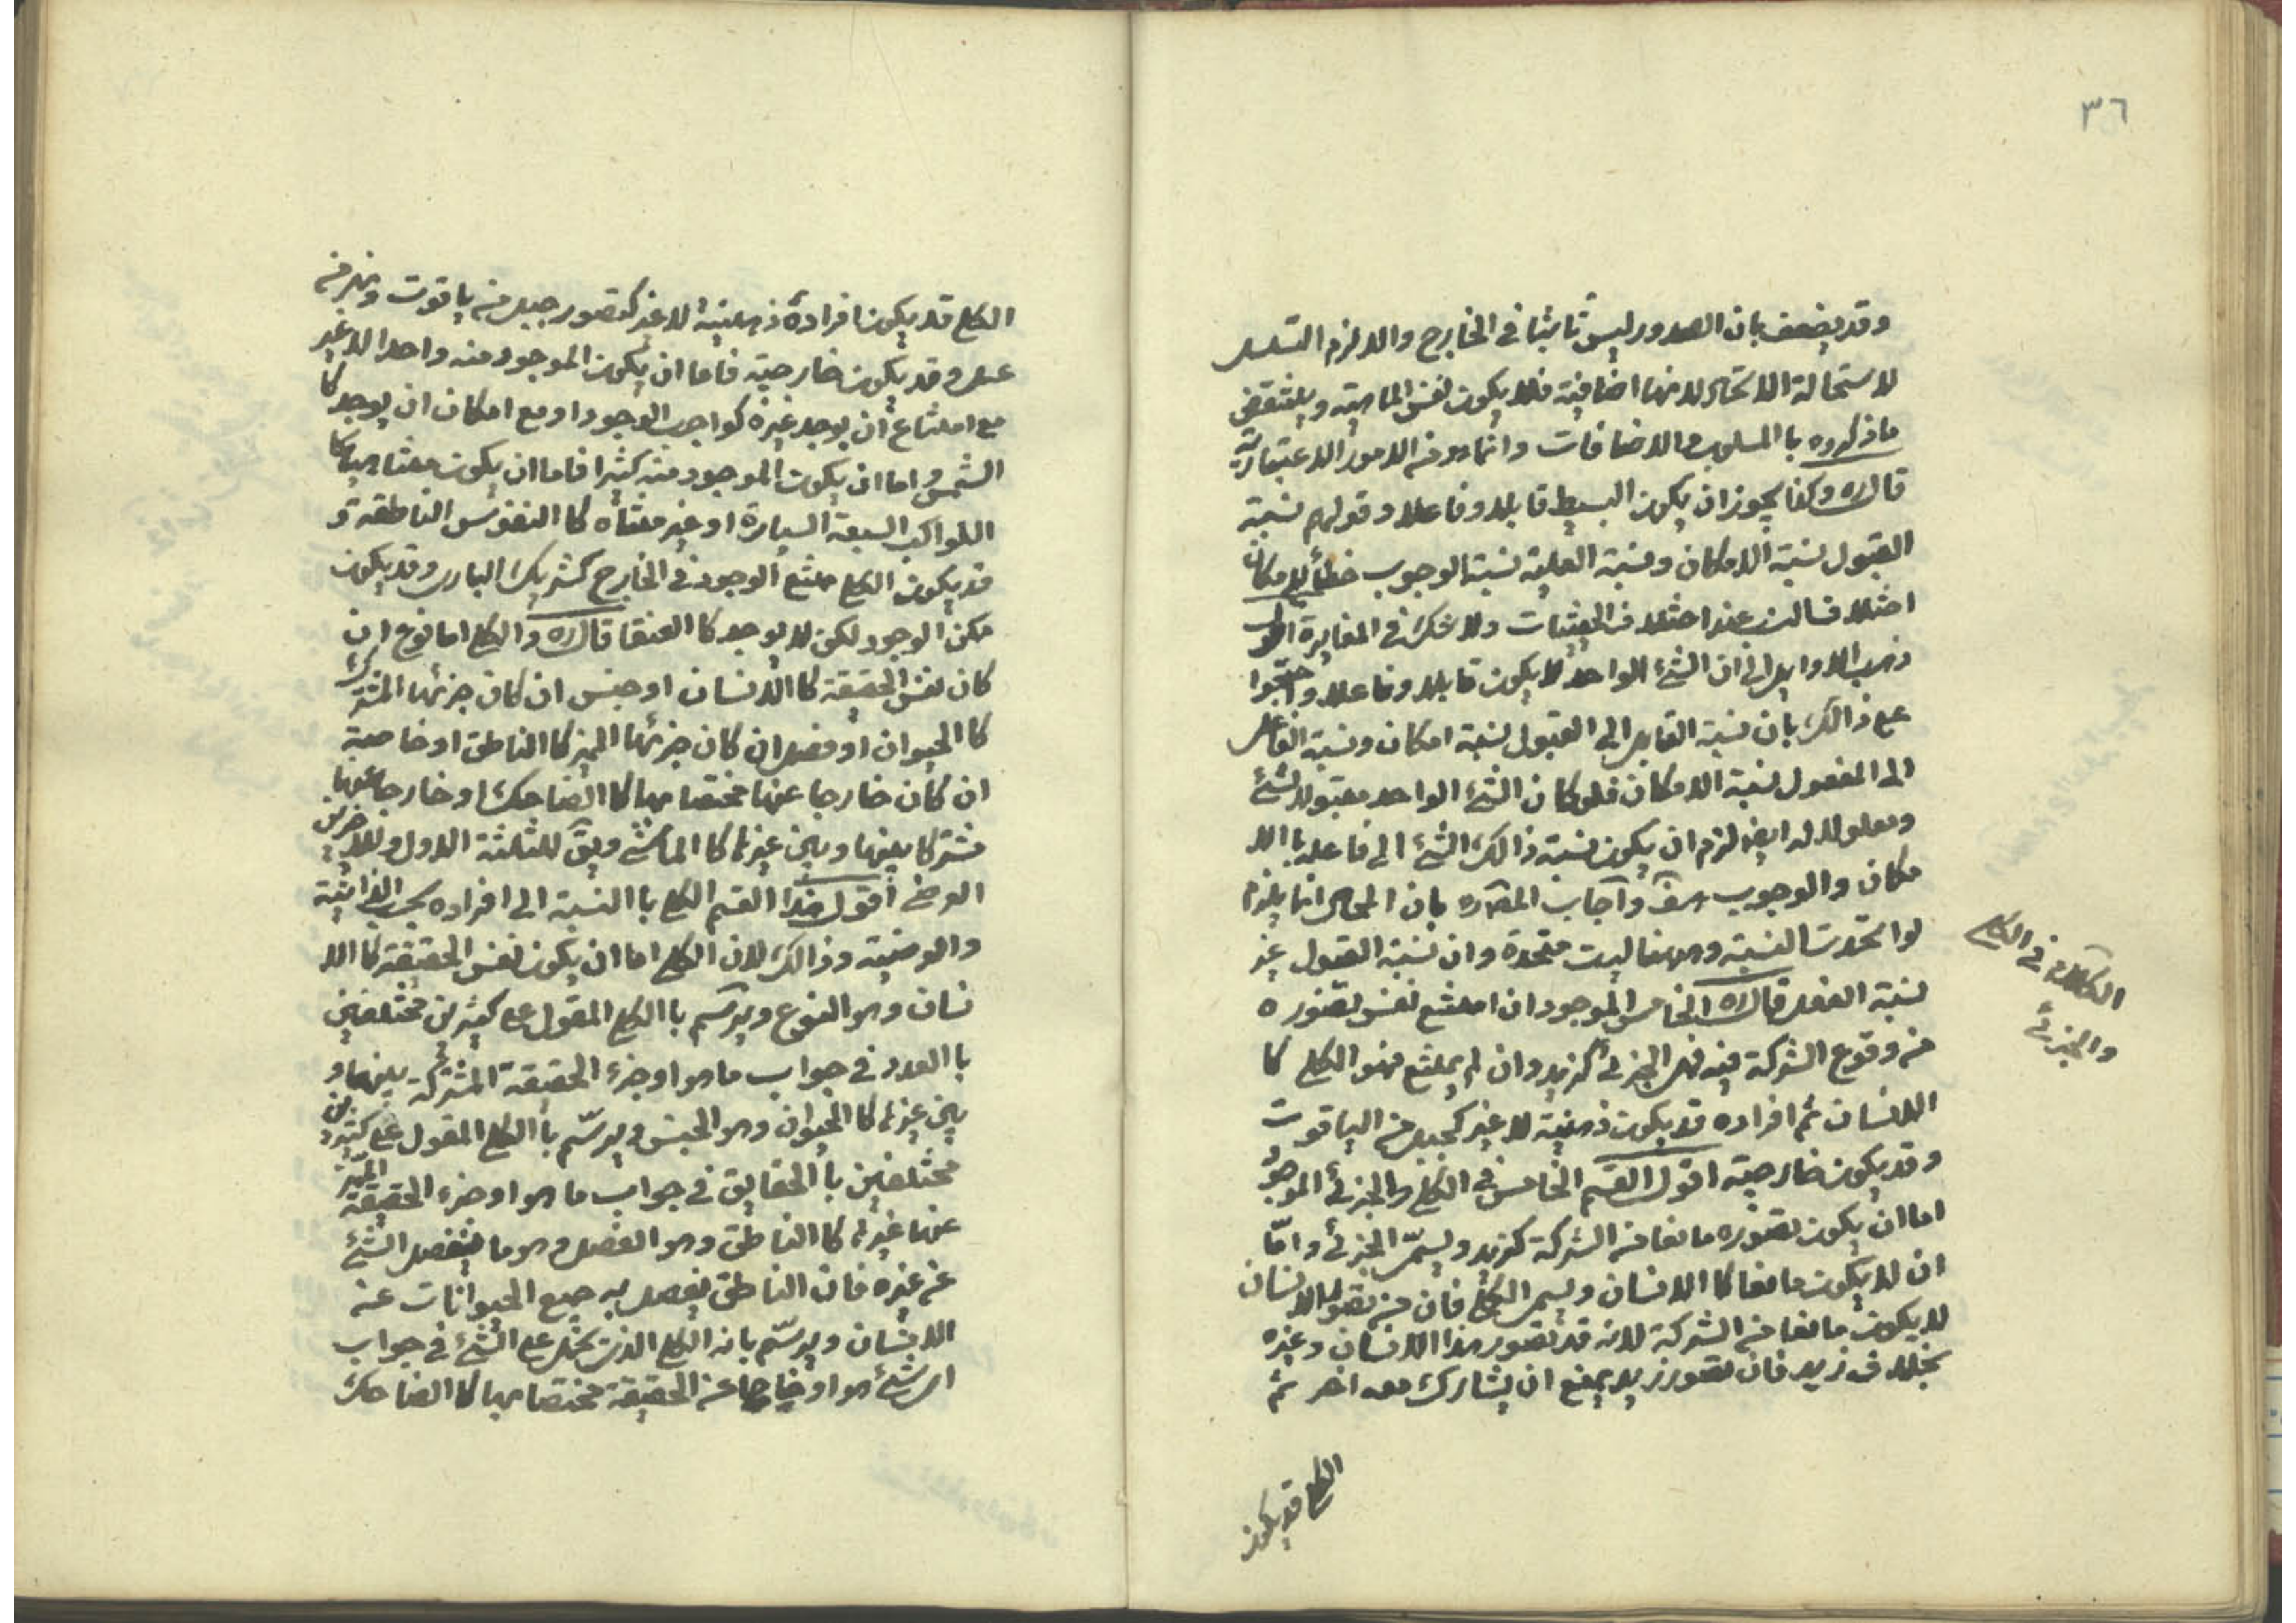 ٣٦
وقد يضعف بان الصدور ليس ثابتا في الخارج والا لزم التسلسل
لاستحالة الاتحاد لانها اضافية فلا يكون نفس الماهية وينتقض
ما ذكروه با السلوب والاضافات وانما هو من الامور الاعتبارية
قال ره وكذا يجوز ان يكون البسيط قابلا وفاعلا وقولهم نسبة
القبول نسبة الامكان ونسبة العلية نسبة الوجوب خطأ لامكان
اختلاف النسب عند اختلاف الحيثيات ولا شك في المغايرة اقول
ذهب الاوايل الى ان الشئ الواحد لا يكون قابلا وفاعلا واحتجوا
على ذالك بان نسبة القابل الى القبول نسبة امكان ونسبة الفاعل
الى المفعول نسبة الامكان فلو كان الشئ الواحد مقبولا لشئ
ومعلولا له ايضا لزم ان يكون نسبة ذالك الشئ الى فاعله با الا
مكان والوجوب هف وآجاب المص ره بان المحال انما يلزم
لو اتحدت النسبة وههنا ليست متحدة وان نسبة القبول غير
نسبة الفعل قال ره الخامس الموجود ان امتنع نفس تصوره
من وقوع الشركة فيه فهو الجزئي كزيد وان لم يمتنع فهو الكلي كا
الانسان ثم افراده قد يكون ذهنية لا غير كجبل من الياقوت
وقد يكون خارجية اقول القسم الخامس في الكلي والجزئي الموجود
اما ان يكون تصوره مانعا من الشركة كزيد ويسمّى الجزئي وامّا
ان لا يكون مانعا كا الانسان ويسمى الكلي فان من تصور الانسان
لا يكون مانعا من الشركة لانه قد تصور هذا الانسان وغيره
بخلاف زيد فان تصور زيد يمنع ان يشارك معه اخر ثم
الكلام في الكلي
والجزئي
الكلي قد يكون
الكلي قد يكون افراده ذهنية لا غير كتصور جبل من ياقوت ونهر من
عسل وقد يكون خارجية فاما ان يكون الموجود منه واحدا لا غير
مع امتناع ان يوجد غيره كواجب الوجود او مع امكان ان يوجد كا
الشمس واما ان يكون الموجود منه كثيرا فاما ان يكون متناهيا كا
الكواكب السبعة السيارة او غير متناه كا النفوس الناطقة و
قد يكون الكلي ممتنع الوجود في الخارج كشريك البارى وقد يكون
ممكن الوجود لكن لا يوجد كا العنقا قال ره والكلي اما نوع ان
كان نفس الحقيقة كا الانسان او جنس ان كان جزئها المشترك
كا الحيوان او فصل ان كان جزئها المميز كا الناطق او خاصة
ان كان خارجا عنها مختصا بها كا الضاحك او خارجا عنها
مشتركا بينها وبين غيرها كا الماشي ويق للثلثة الاول وللاخرين
العرضي أقول هذا القسم الكلي با النسبة الى افراده بحسب الذاتية
والعرضية وذالك لان الكلي اما ان يكون نفس الحقيقة كا الا
نسان وهو النوع ويرسم با الكلي المقول على كثيرين مختلفين
با العدد في جواب ما هو او جزء الحقيقة المشتركة بينها و
بين غيرها كا الحيوان وهو الجنس ويرسّم با الكلي المقول على كثيرين
مختلفين با الحقايق في جواب ما هو او جزء الحقيقة المميز
عنها غيرها كا الناطق وهو الفصل وهو ما ينفصل الشئ
عن غيره فان الناطق يفصل به جميع الحيوانات عنه
الانسان ويرسّم بانه الكلي الذى يحمل على الشئ في جواب
اى شئ هو او خارجا عن الحقيقة مختصا بها كا الضاحك